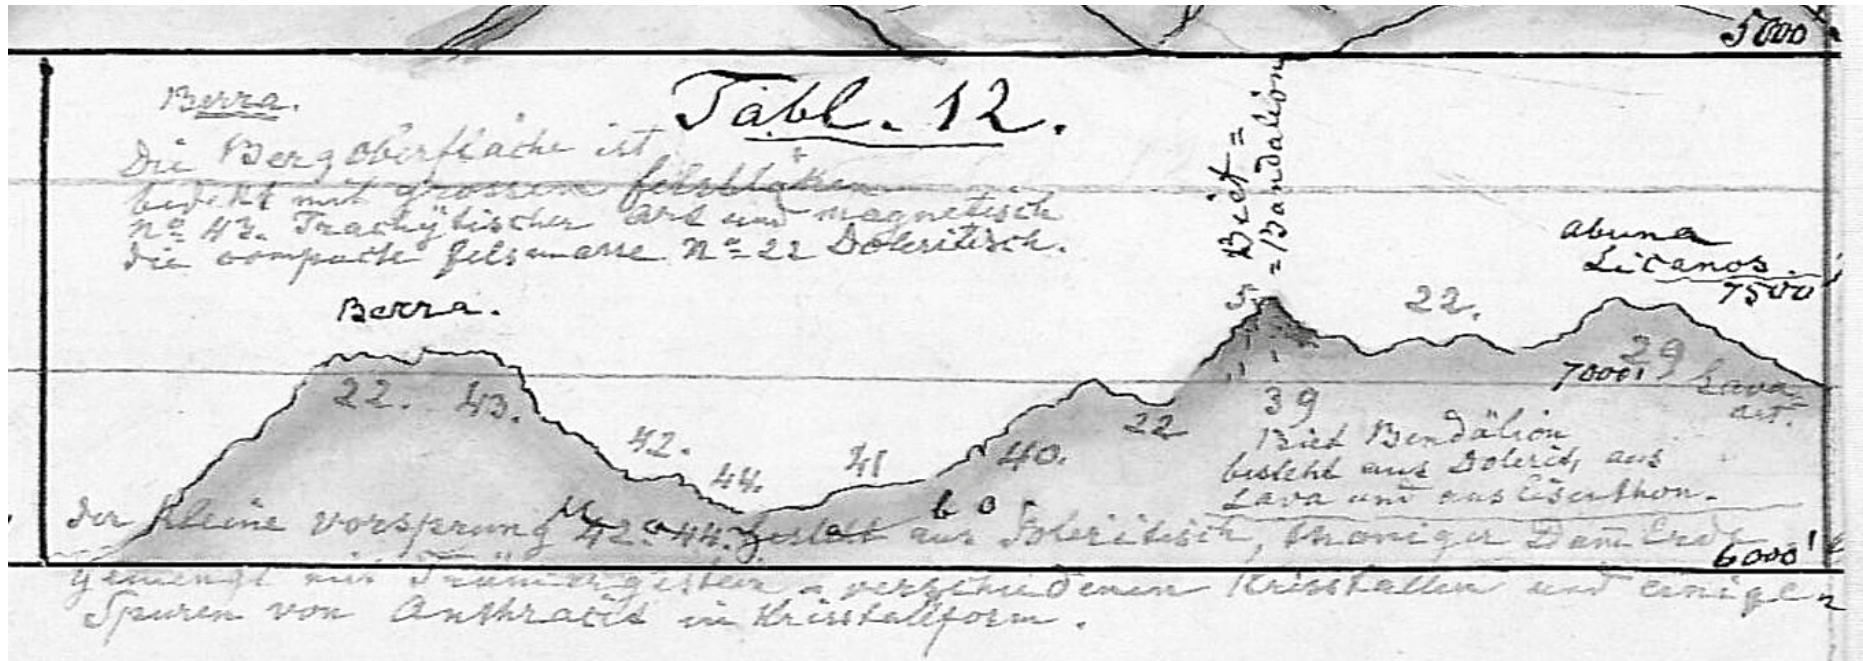 5000
Tabl. 12.
Berra.
Die Bergoberfläche ist
bedekt mit grossen felsblöken
No 43. Trachÿtischer Art und magnetisch
die compacte felsmasse No 22 Doleritisch.
Biet =
= Bandalion
Abuna
Licanos.
7500'
Berra.
5
22.
29
7000'
Lava
art.
22. 43.
42.
44.
41
40.
22
39
Biet Bendälion
besteht aus Dolerit, aus
Lava und aus Eisenthon.
b o
Der kleine vorsprung No 42. 44. besteht aus Doleritisch, thoniger Dam Erde
6000'
gemengt mit Trümergestein verschiedenen Kristallen und einigen
Spuren von Anthracit in Kristallform.